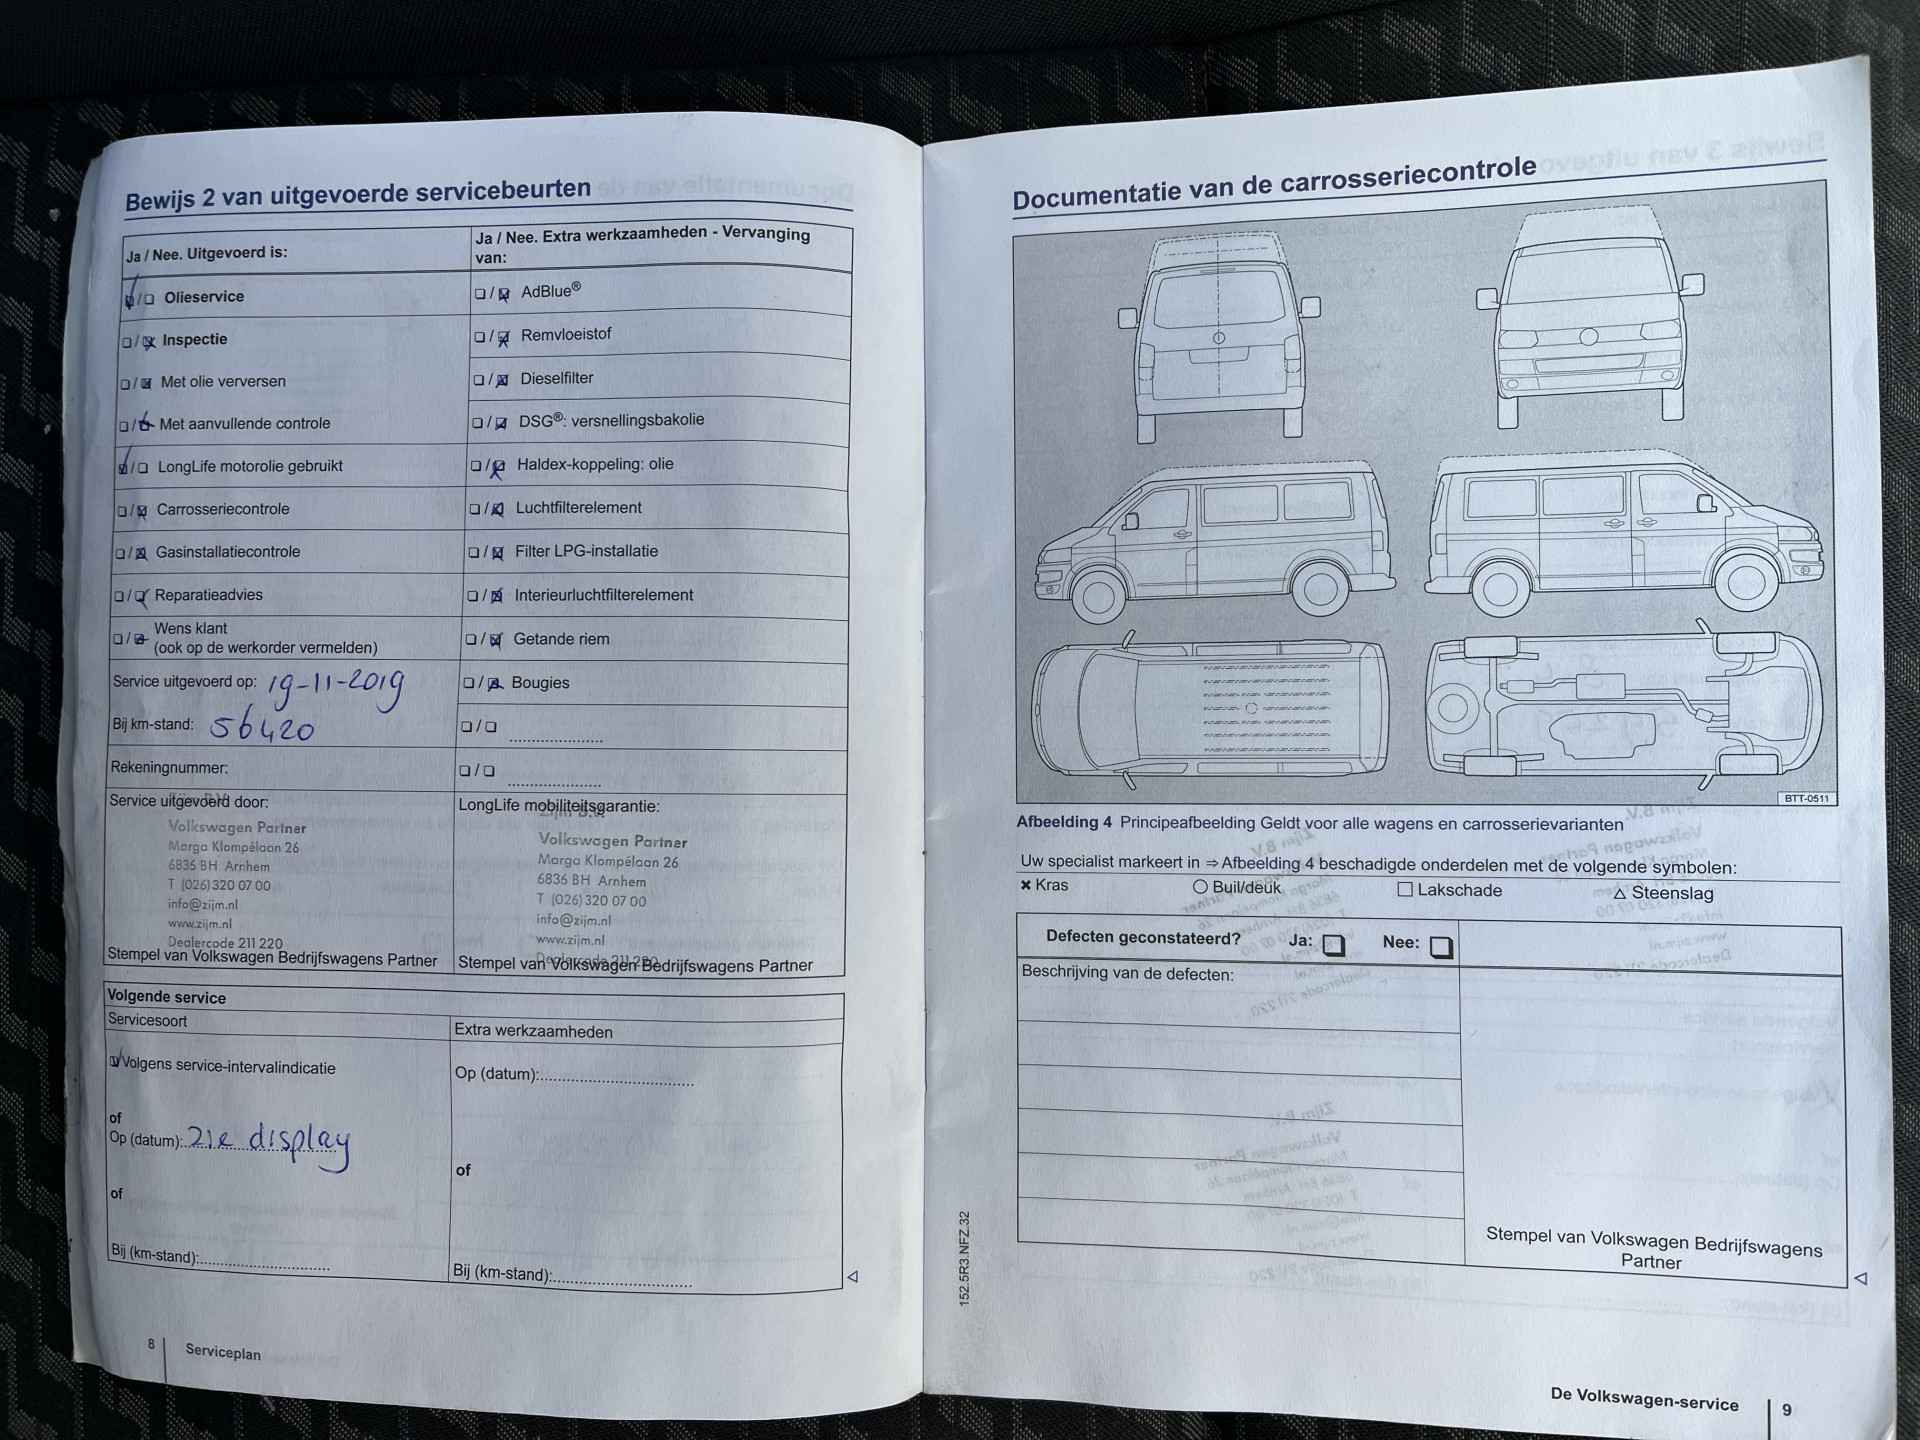 Bewijs 2 van uitgevoerde servicebeurten
Ja / Nee. Uitgevoerd is:
Ja / Nee. Extra werkzaamheden - Vervanging van:
Olieservice
Inspectie
Met olie verversen
Met aanvullende controle
LongLife motorolie gebruikt
Carrosseriecontrole
Gasinstallatiecontrole
Reparatieadvies
Wens klant
(ook op de werkorder vermelden)
Service uitgevoerd op: 19-11-2019
Bij km-stand: 56420
Rekeningnummer:
AdBlue®
Remvloeistof
Dieselfilter
DSG®: versnellingsbakolie
Haldex-koppeling: olie
Luchtfilterelement
Filter LPG-installatie
Interieurluchtfilterelement
Getande riem
Bougies
Service uitgevoerd door:
Zijm B.V.
Volkswagen Partner
Marga Klompélaan 26
6836 BH Arnhem
T (026) 320 07 00
info@zijm.nl
www.zijm.nl
Dealercode 211 220
Stempel van Volkswagen Bedrijfswagens Partner
LongLife mobiliteitsgarantie:
Zijm B.V.
Volkswagen Partner
Marga Klompélaan 26
6836 BH Arnhem
T (026) 320 07 00
info@zijm.nl
www.zijm.nl
Dealercode 211 220
Stempel van Volkswagen Bedrijfswagens Partner
Volgende service
Servicesoort
Volgens service-intervalindicatie
of
Op (datum): zie display
of
Bij (km-stand):
Extra werkzaamheden
Op (datum):
of
Bij (km-stand):
8 Serviceplan
Documentatie van de carrosseriecontrole
BTT-0511
Afbeelding 4 Principeafbeelding Geldt voor alle wagens en carrosserievarianten
Uw specialist markeert in ⇒ Afbeelding 4 beschadigde onderdelen met de volgende symbolen:
✖ Kras ○ Buil/deuk □ Lakschade △ Steenslag
Defecten geconstateerd? Ja: Nee:
Beschrijving van de defecten:
Stempel van Volkswagen Bedrijfswagens
Partner
152.5R3.NFZ.32
De Volkswagen-service 9